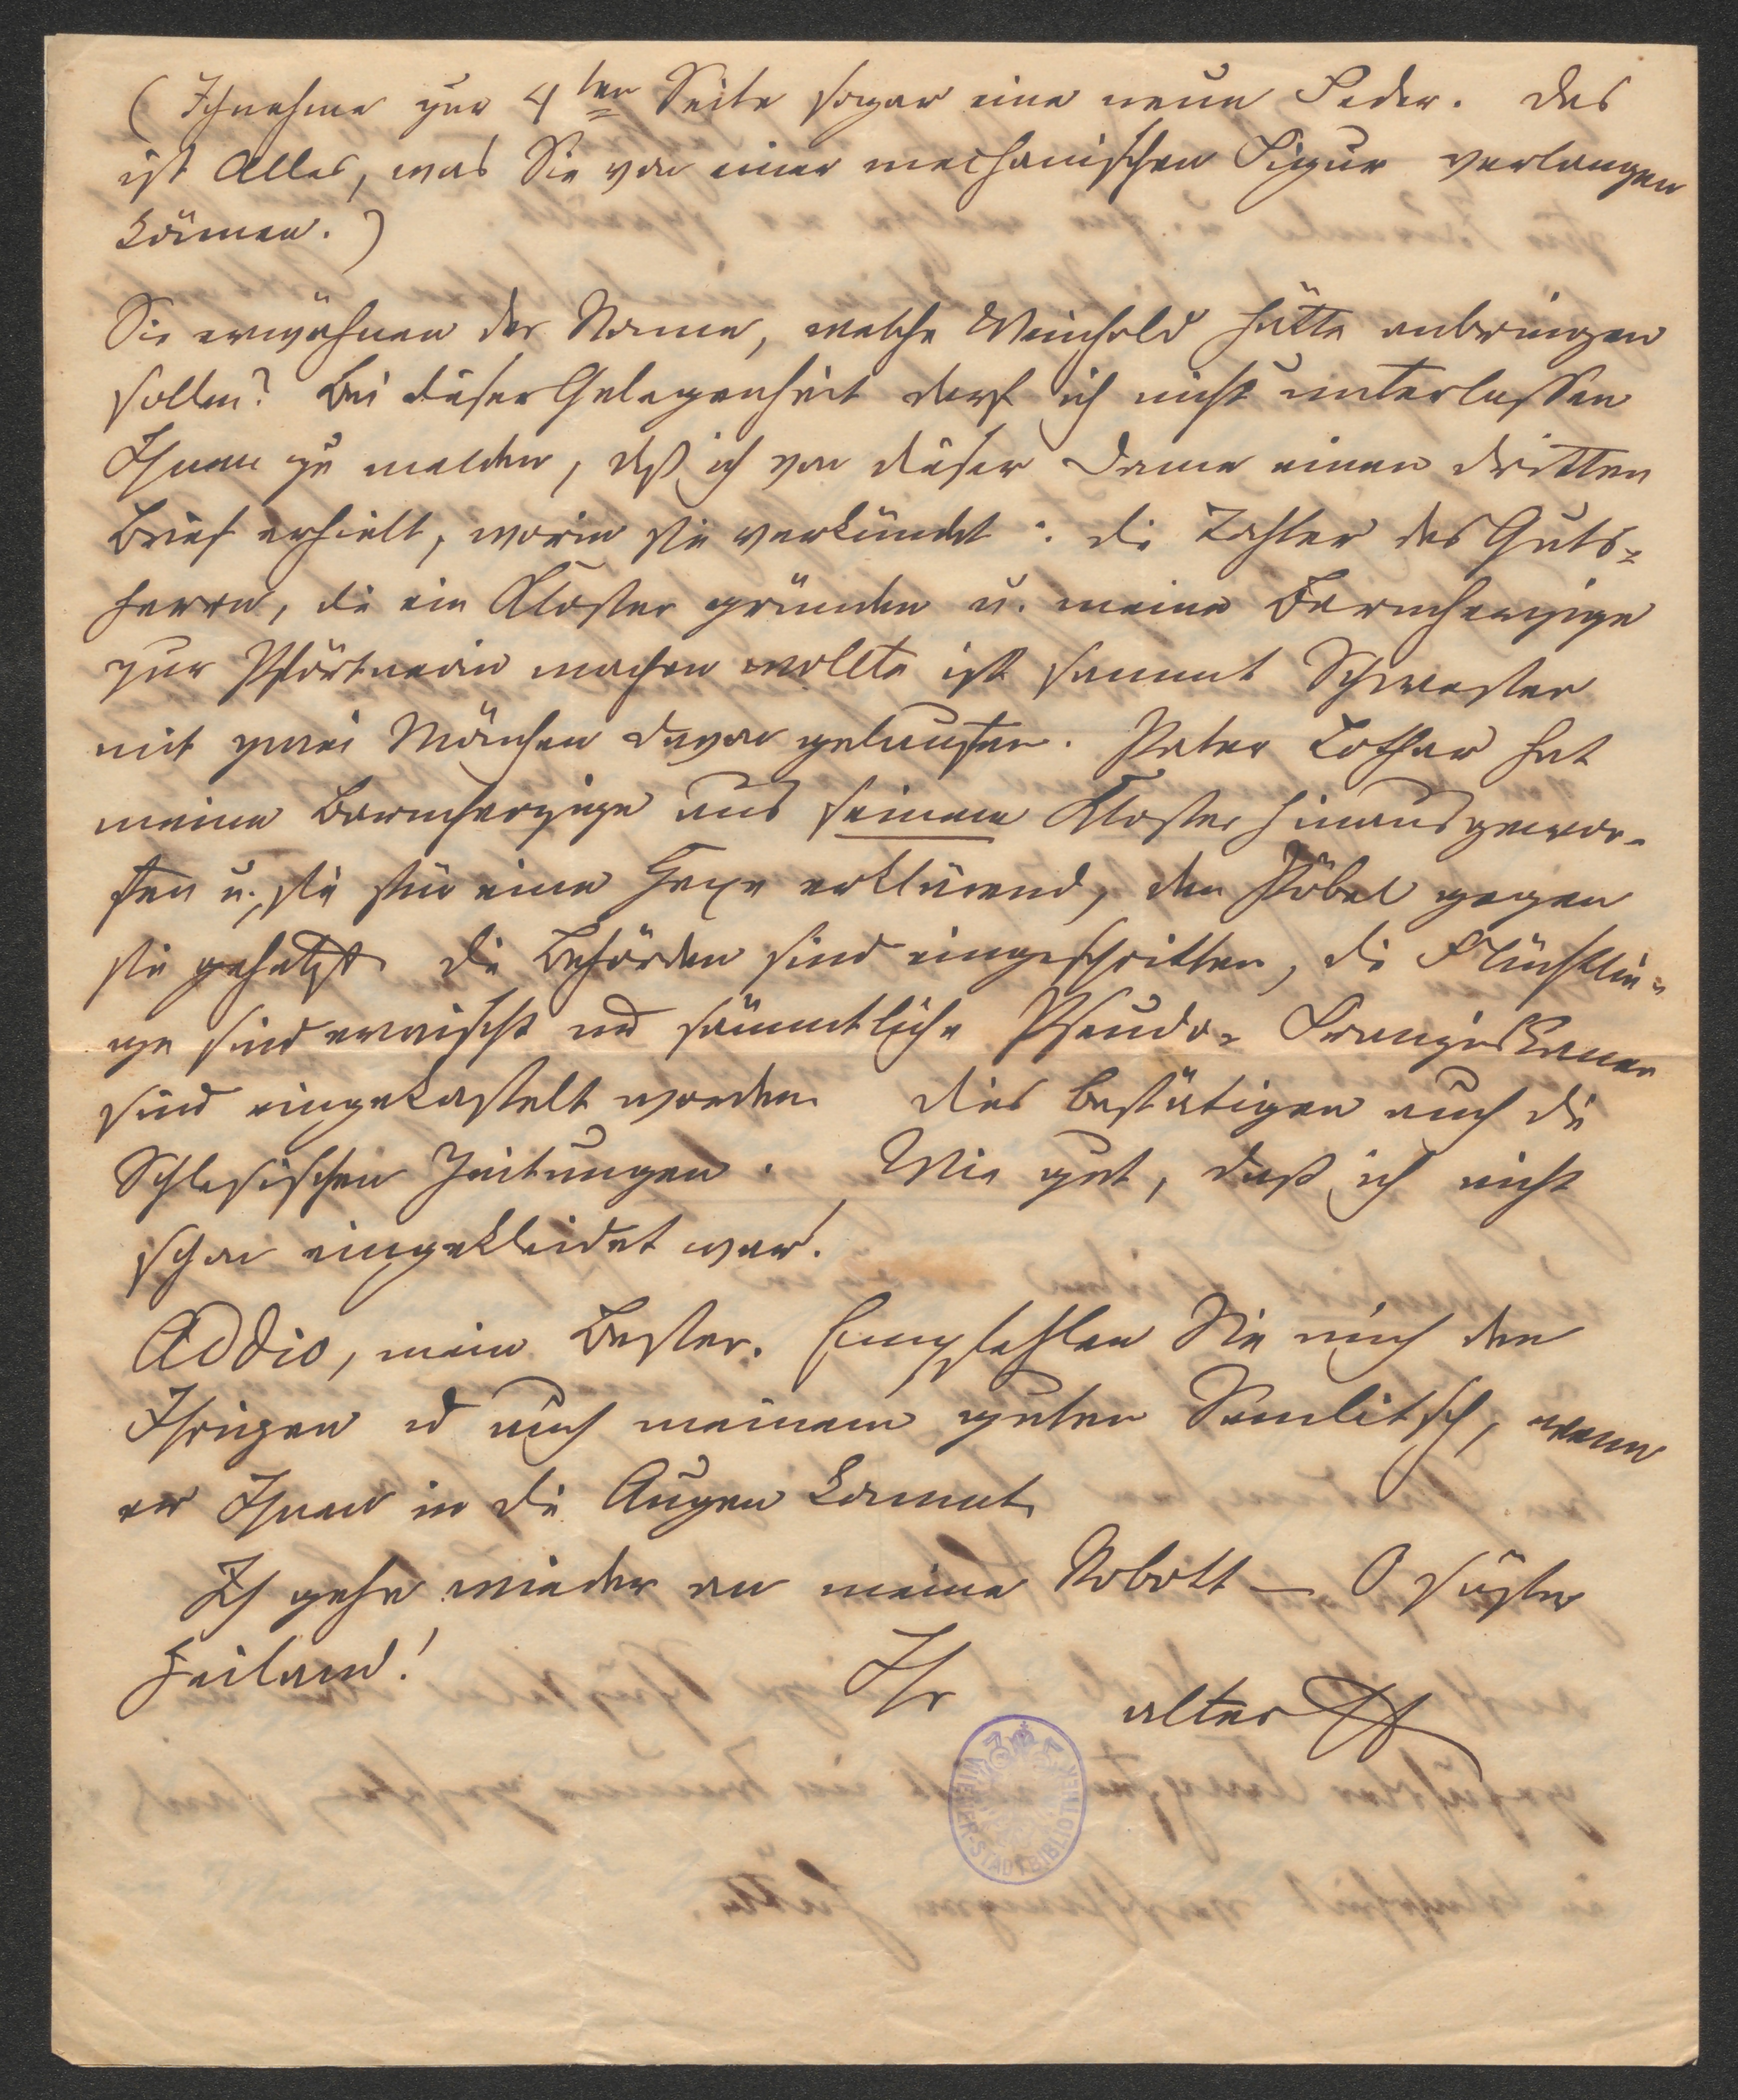 (Ich nehme zur 4ten Seite sogar eine neue Feder. Das
ist Alles, was Sie von einer mechanischen Figur verlangen
können.)
Sie erwähnen der Nonne, welche Weinhold hätte anbringen
sollen? Bei dieser Gelegenheit darf ich nicht unterlassen
Ihnen zu melden, daß ich von dieser Dame einen dritten
Brief erhielt, worin sie verkündet: die Tochter des Guts-
herrn, die ein Kloster gründen u. meine Barmherzige
zur Pförtnerin machen wollte ist sammt Schwester
mit zwei Mönchen davon gelaufen. Pater Lothar hat
meine Barmherzige aus seinem Kloster hinausgewor-
fen u., sie für eine Hexe erklärend, den Pöbel gegen
sie gehetzt. Die Behörden sind eingeschritten, die Flüchtlin-
ge sind erwischt und sämmtliche Pseudo-Franziskaner
sind eingekastelt worden. Dies bestätigen auch die
Schlesischen Zeitungen. Wie gut, daß ich nicht
schon eingekleidet war!
Addio, mein Bester. Empfehlen Sie mich den
Ihrigen und auch meinem guten Semlitsch, wenn
er Ihnen in die Augen kommt.
Ich gehe wieder an meine Robott — O süßer
Heiland!
Ihr
alter H
WIENER STADTBIBLIOTHEK